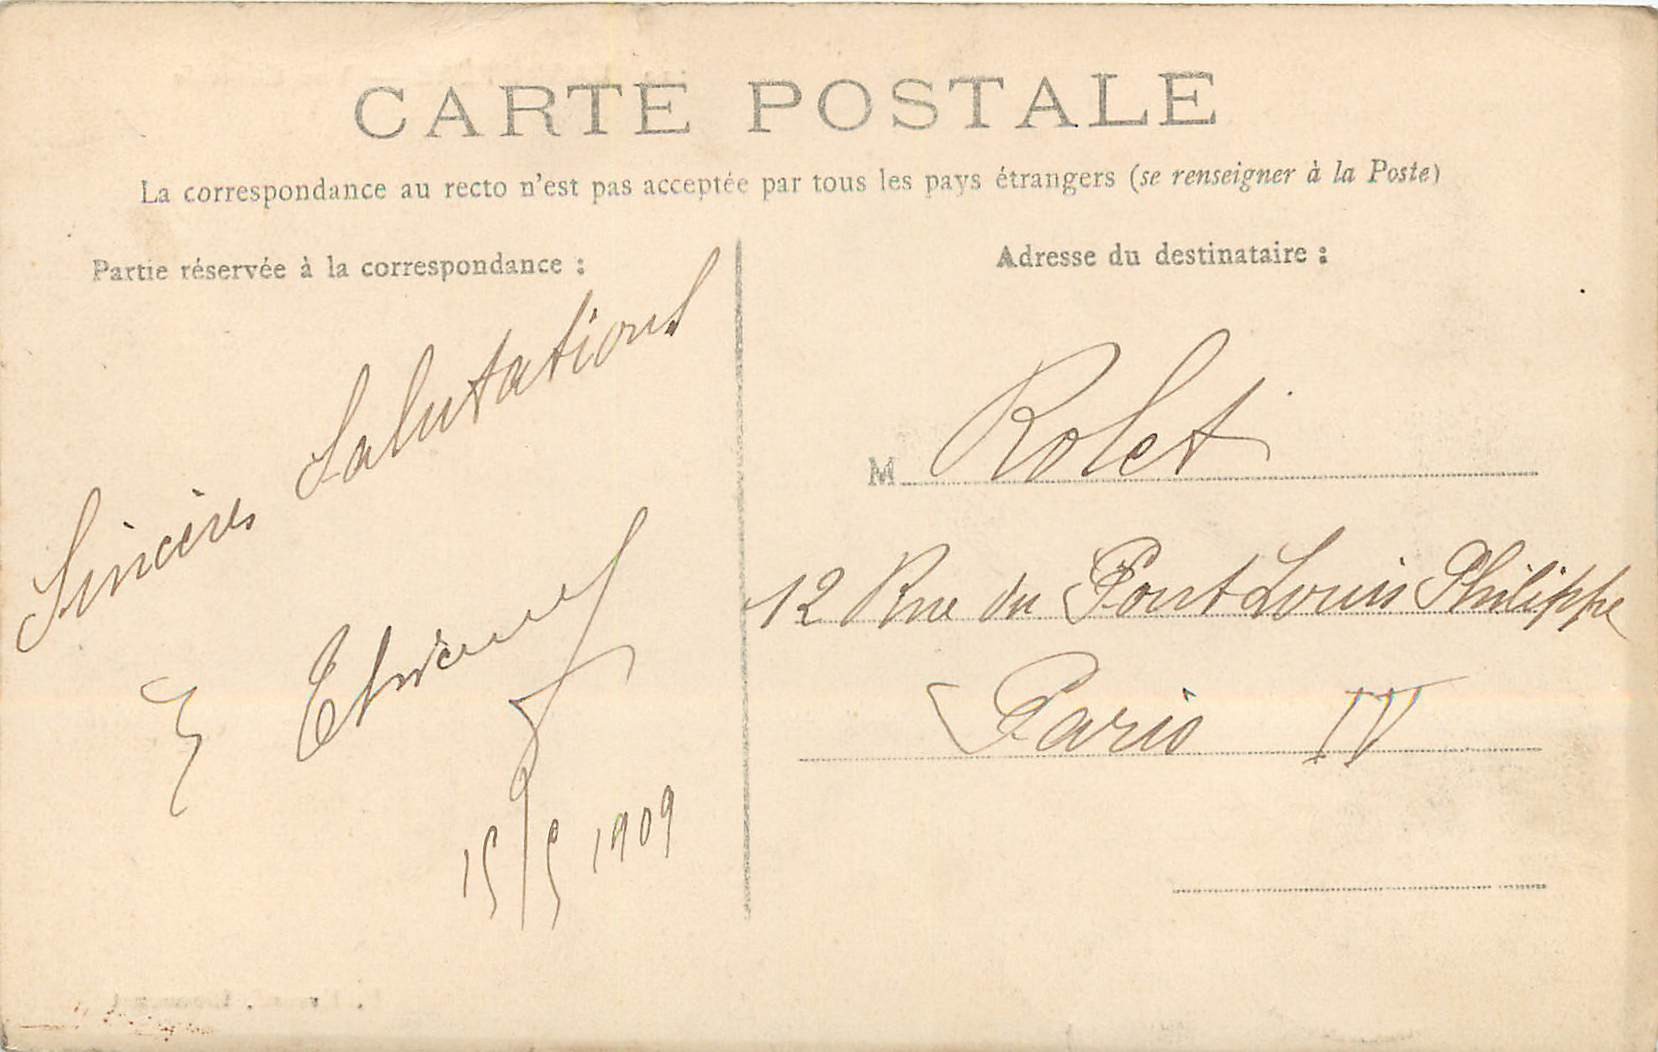 CARTE POSTALE
La correspondance au recto n'est pas acceptée par tous les pays étrangers (se renseigner à la Poste)
Partie réservée à la correspondance :
Sincères Salutations
15/5 1909
Adresse du destinataire :
M Rolet
12 Rue du Pont Louis Philippe
Paris IV